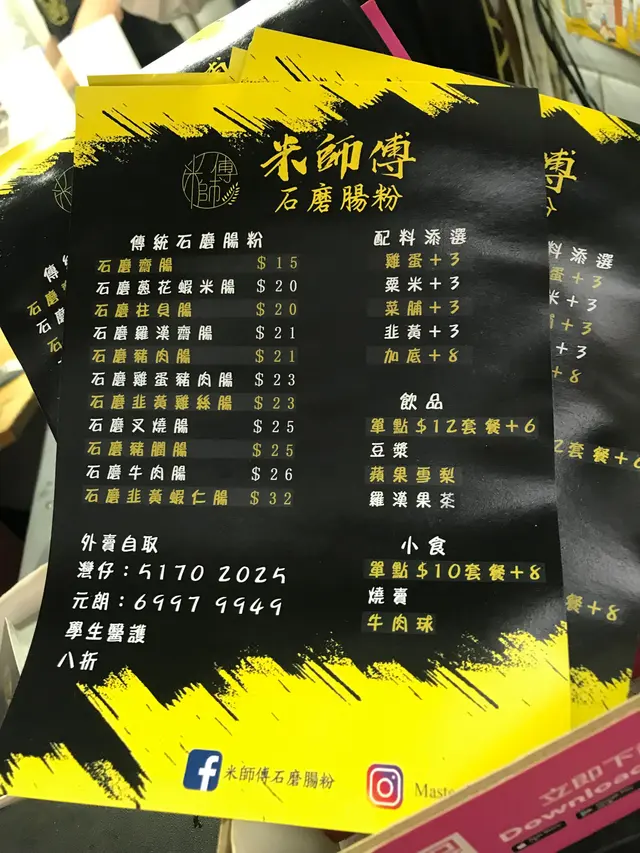 米師傅
石磨腸粉
米師傅
傳統石磨腸粉
石磨齋腸 $15
石磨蔥花蝦米腸 $20
石磨柱貝腸 $20
石磨羅漢齋腸 $21
石磨豬肉腸 $21
石磨雞蛋豬肉腸 $23
石磨韭黃雞絲腸 $23
石磨叉燒腸 $25
石磨豬膶腸 $25
石磨牛肉腸 $26
石磨韭黃蝦仁腸 $32
外賣自取
灣仔：5170 2025
元朗：6997 9949
學生醫護
八折
配料添選
雞蛋+3
粟米+3
菜脯+3
韭黃+3
加底+8
飲品
單點$12套餐+6
豆漿
蘋果雪梨
羅漢果茶
小食
單點$10套餐+8
燒賣
牛肉球
米師傅石磨腸粉
Maste
傅
料添選
蛋+3
米+3
+3
+3
+8
2套餐+6
餐+8
立即下
Download